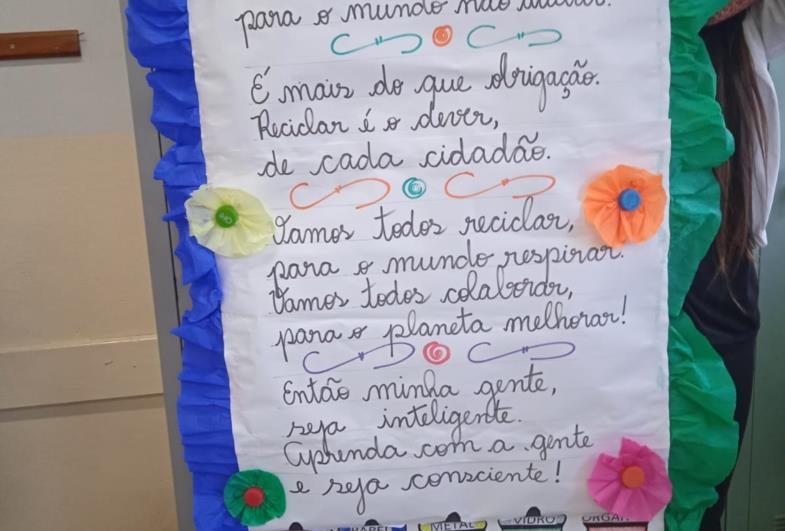 para o mundo não
É mais do que obrigação.
Reciclar é o dever,
de cada cidadão.
Vamos todos reciclar,
para o mundo respirar.
Vamos todos colaborar,
para o planeta melhorar!
Então minha gente,
seja inteligente.
Aprenda com a gente
e seja consciente!
PAPEL METAL VIDRO